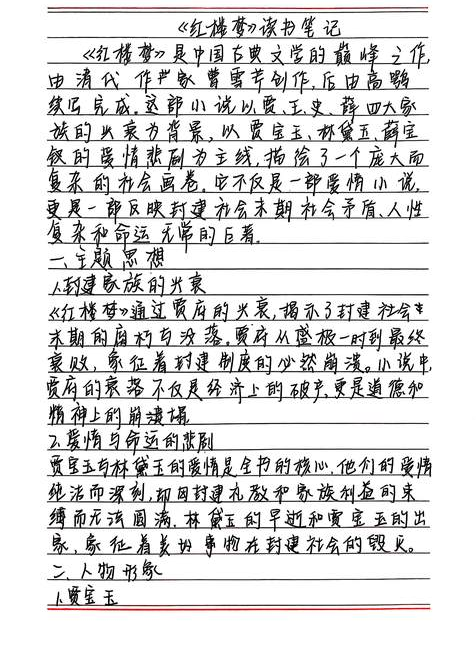 《红楼梦》读书笔记
《红楼梦》是中国古典文学的巅峰之作,
由清代作家曹雪芹创作,后由高鹗
续写完成。这部小说以贾、王、史、薛四大家
族的兴衰为背景,以贾宝玉、林黛玉、薛宝
钗的爱情悲剧为主线,描绘了一个庞大而
复杂的社会画卷。它不仅是一部爱情小说,
更是一部反映封建社会末期社会矛盾、人性
复杂和命运无常的巨著。
一、主题思想
1.封建家族的兴衰
《红楼梦》通过贾府的兴衰,揭示了封建社会
末期的腐朽与没落。贾府从盛极一时到最终
衰败,象征着封建制度的必然崩溃。小说中,
贾府的衰落不仅是经济上的破产,更是道德和
精神上的崩塌
2.爱情与命运的悲剧
贾宝玉与林黛玉的爱情是全书的核心,他们的爱情
纯洁而深刻,却因封建礼教和家族利益的束
缚而无法圆满.林黛玉的早逝和贾宝玉的出
家,象征着美好事物在封建社会的毁灭。
二、人物形象
1.贾宝玉